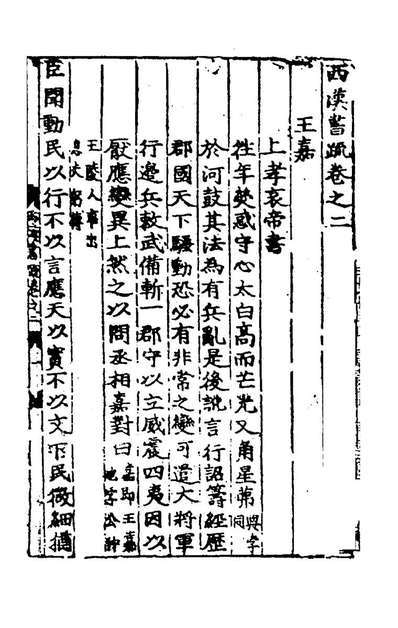 西漢書疏卷之二
王嘉
上孝哀帝書
往年熒惑守心太白高而芒光又角星茀與孛同
於河鼓其法為有兵亂是後訛言行詔籌經歷
郡國天下騷動恐必有非常之變可遣大將軍
行邊兵敕武備斬一郡守以立威震四夷因以
厭應變異上然之以問丞相嘉對曰嘉即王嘉也字公仲
王陵人事出
臣聞動民以行不以言應天以實不以文下民微細猶